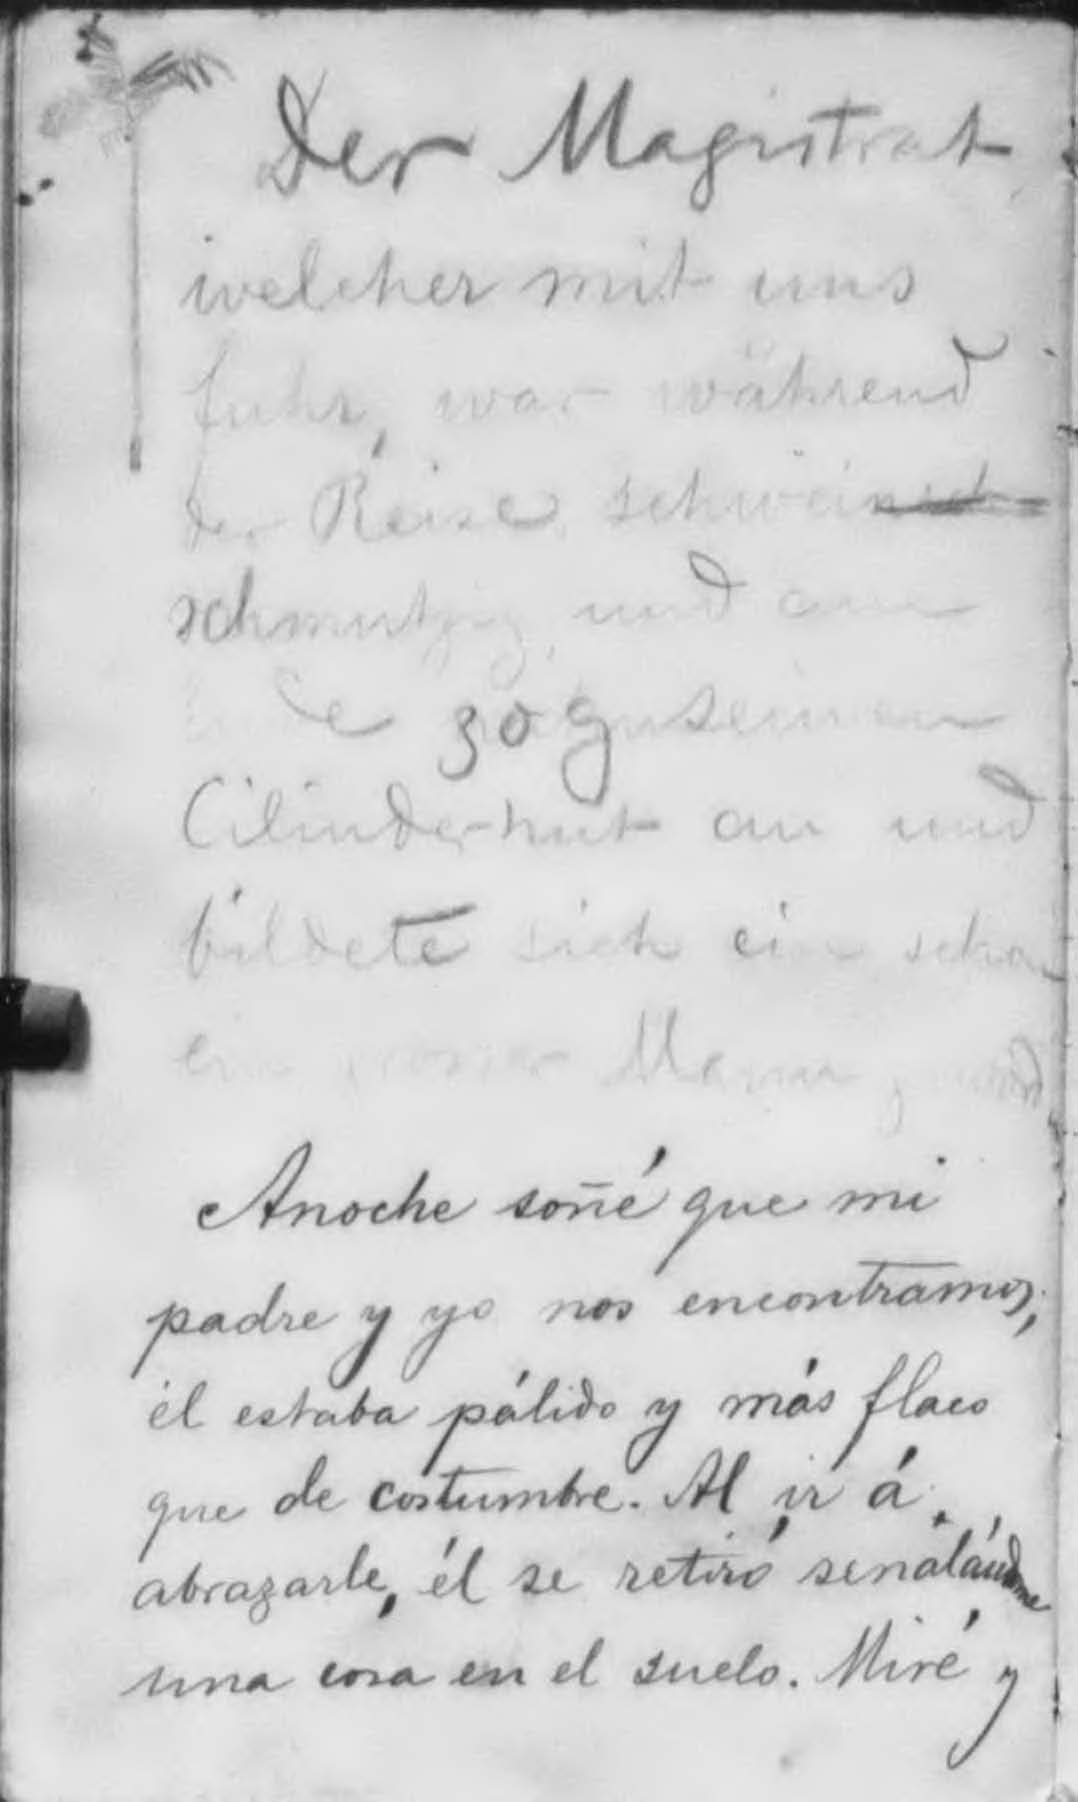 Der Magistrat
welcher mit uns
fuhr, war während
der Reise schwein
schmutzig, und am
zog seinen
Cilinderhut an und
bildete sich ein scho
ein grosser Mann
Anoche soñé que mi
padre y yo nos encontramos,
él estaba pálido y más flaco
que de costumbre. Al ir á
abrazarle, él se retiró señalándome
una cosa en el suelo. Miré y